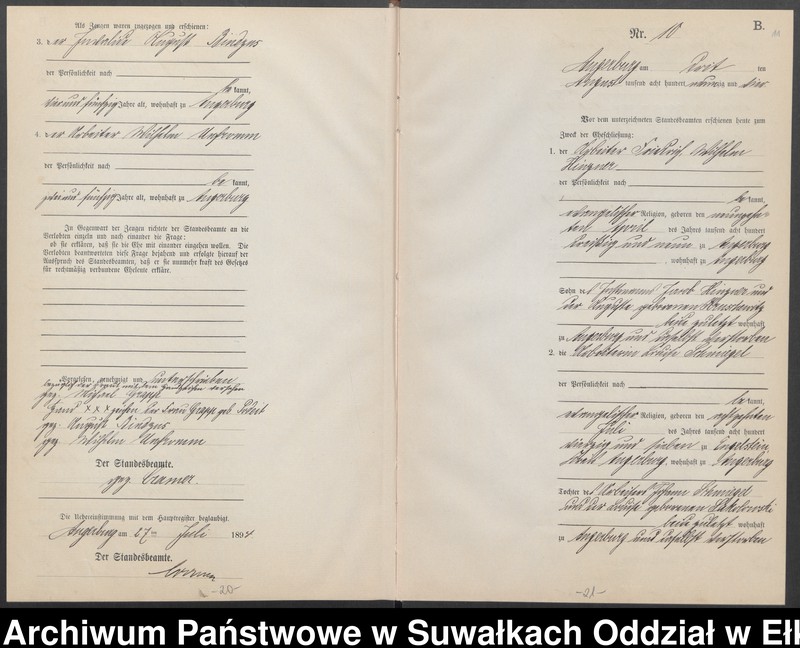 Als Zeugen waren zugezogen und erschienen:
3. der Invalide August Bindzus
der Persönlichkeit nach
be kannt,
vier und fünfzig Jahre alt, wohnhaft zu Angerburg
4. der Arbeiter Wilhelm
der Persönlichkeit nach
be kannt,
zwei und fünfzig Jahre alt, wohnhaft zu Angerburg
In Gegenwart der Zeugen richtete der Standesbeamte an die
Verlobten einzeln und nach einander die Frage:
ob sie erklären, daß sie die Ehe mit einander eingehen wollen. Die
Verlobten beantworteten diese Frage bejahend und erfolgte hierauf der
Ausspruch des Standesbeamten, daß er sie nunmehr kraft des Gesetzes
für rechtmäßig verbundene Eheleute erkläre.
Vorgelesen, genehmigt und unterschrieben
gez. Michael Grapp
Hand x x x zeichen der Frau Grapp geb.
gez. August Bindzus
gez. Wilhelm
Der Standesbeamte.
gez. Cramer.
Die Uebereinstimmung mit dem Hauptregister beglaubigt.
Angerburg am 27ten Juli 1894
Der Standesbeamte.
Cramer
-20-
B.
Nr. 10
Angerburg am den
August tausend acht hundert neunzig und vier
Vor dem unterzeichneten Standesbeamten erschienen heute zum
Zweck der Eheschließung:
1. der Arbeiter Friedrich Wilhelm
der Persönlichkeit nach
be kannt,
evangelischer Religion, geboren den neunzehn-
ten April des Jahres tausend acht hundert
dreißig und neun zu Angerburg
, wohnhaft zu Angerburg
Sohn des Jacob und
der Auguste geborenen
beide zuletzt wohnhaft
zu Angerburg und daselbst verstorben
2. die Arbeiterin Louise Schmiegel
der Persönlichkeit nach
be kannt,
evangelischer Religion, geboren den achtzehnten
Juli des Jahres tausend acht hundert
vierzig und sieben zu Engelstein
Angerburg, wohnhaft zu Angerburg
Tochter des Arbeiters Johann Schmiegel
und der Louise geborenen Sakolowski
beide zuletzt wohnhaft
zu Angerburg und daselbst verstorben
-21-
Archiwum Państwowe w Suwałkach Oddział w Eł